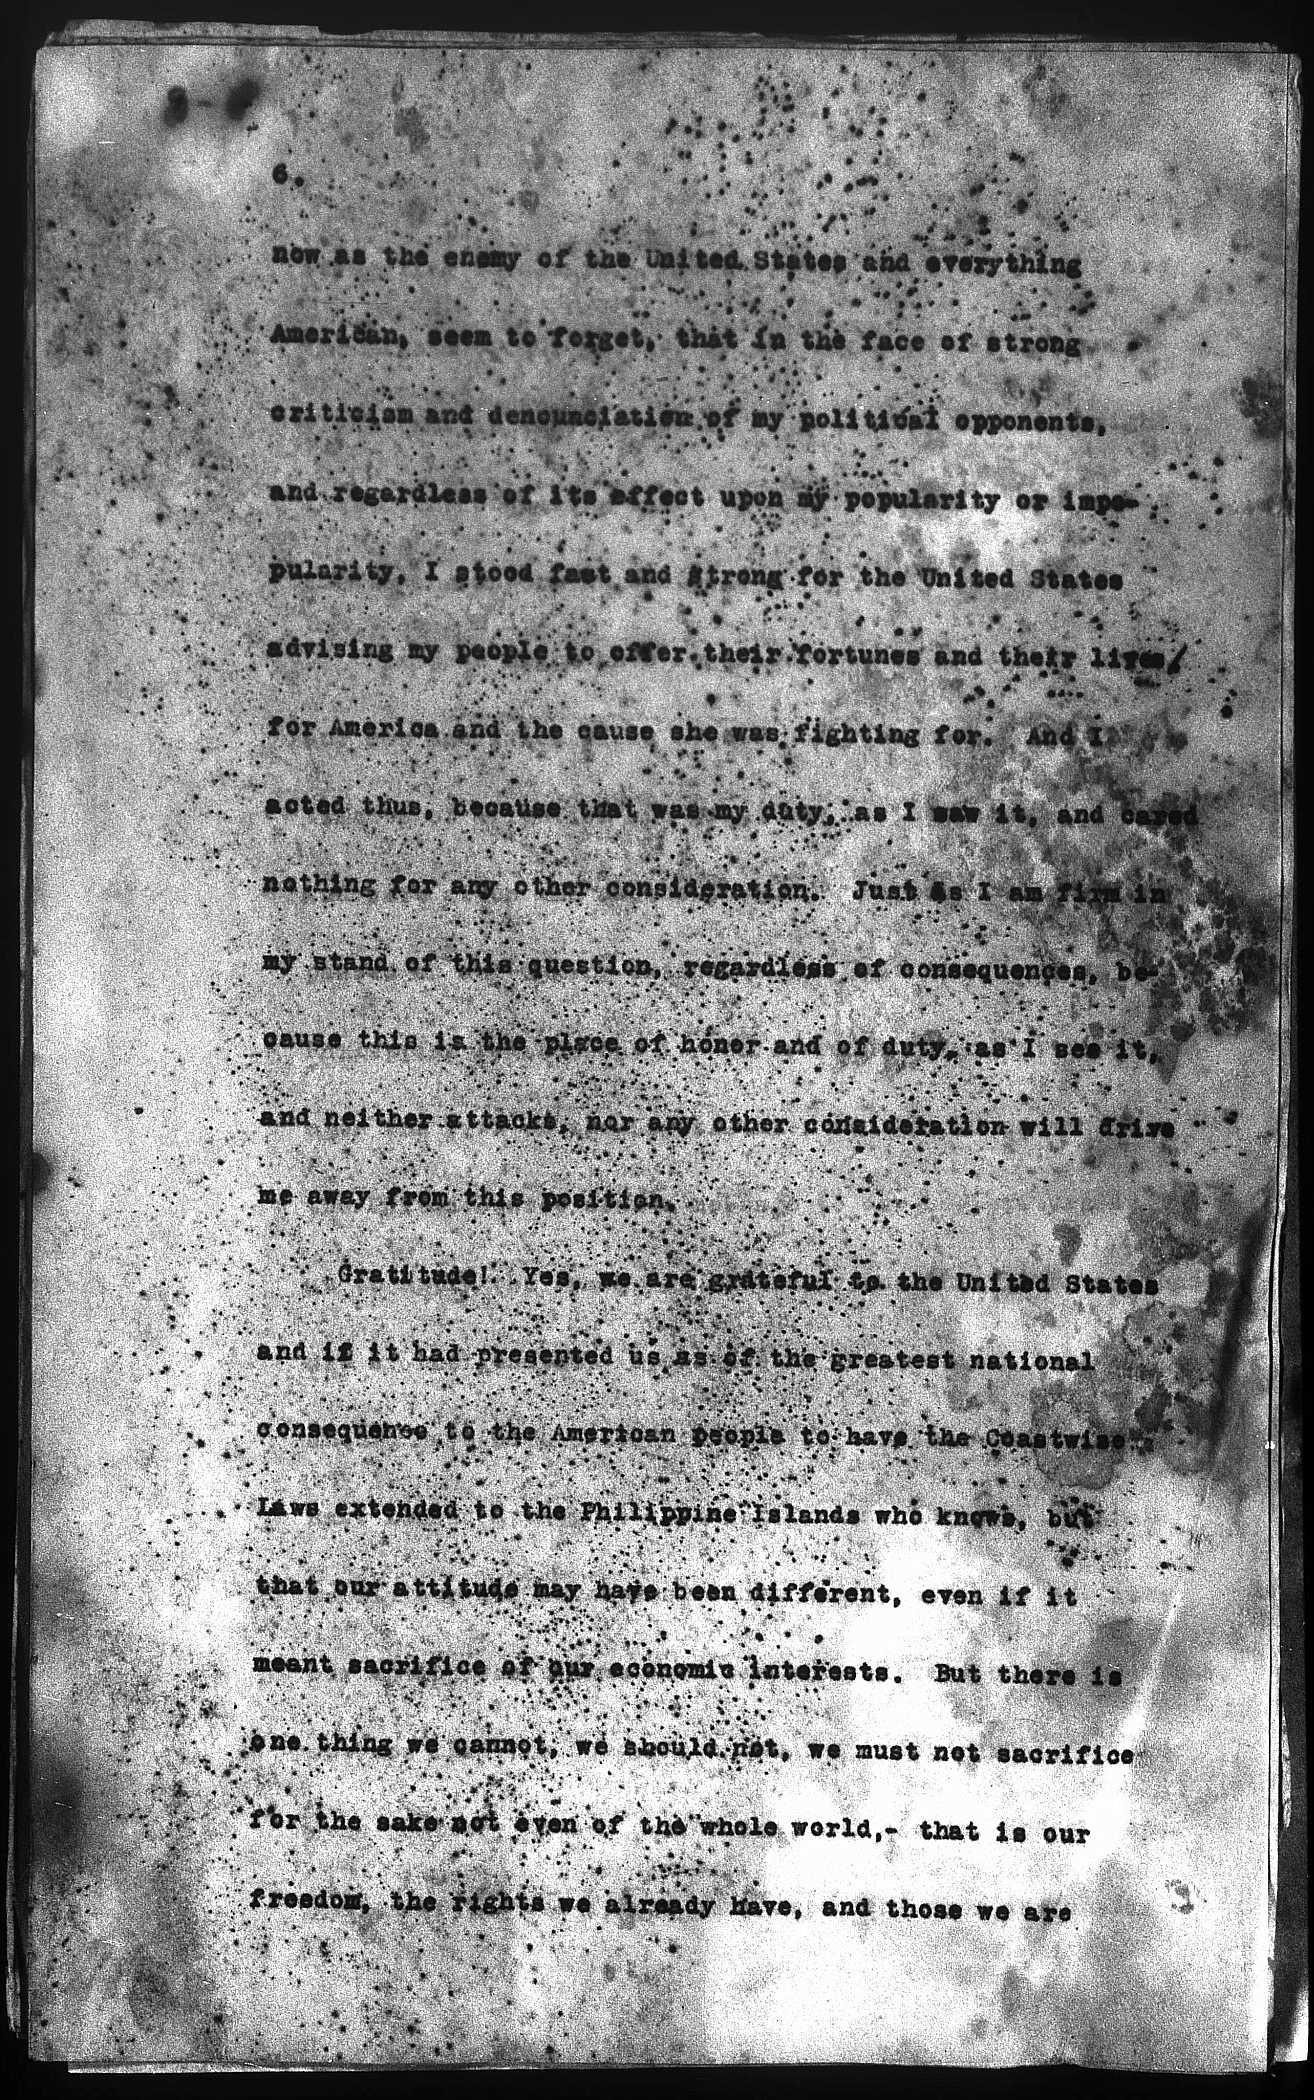 6.
now as the enemy of the United States and everything
American, seem to forget, that in the face of strong
criticism and denounciation of my political opponents,
and regardless of its effect upon my popularity or impo-
pularity, I stood fast and strong for the United States
advising my people to offer their fortunes and their lives
for America and the cause she was fighting for. And I
acted thus, because that was my duty, as I saw it, and cared
nothing for any other consideration. Just as I am firm in
my stand of this question, regardless of consequences, be-
cause this is the place of honor and of duty, as I see it,
and neither attacks, nor any other consideration will drive
me away from this position.
Gratitude! Yes, we are grateful to the United States
and if it had presented us as of the greatest national
consequence to the American people to have the Coastwise
Laws extended to the Philippine Islands who knows, but
that our attitude may have been different, even if it
meant sacrifice of our economic interests. But there is
one thing we cannot, we should not, we must not sacrifice
for the sake not even of the whole world,- that is our
freedom, the rights we already have, and those we are